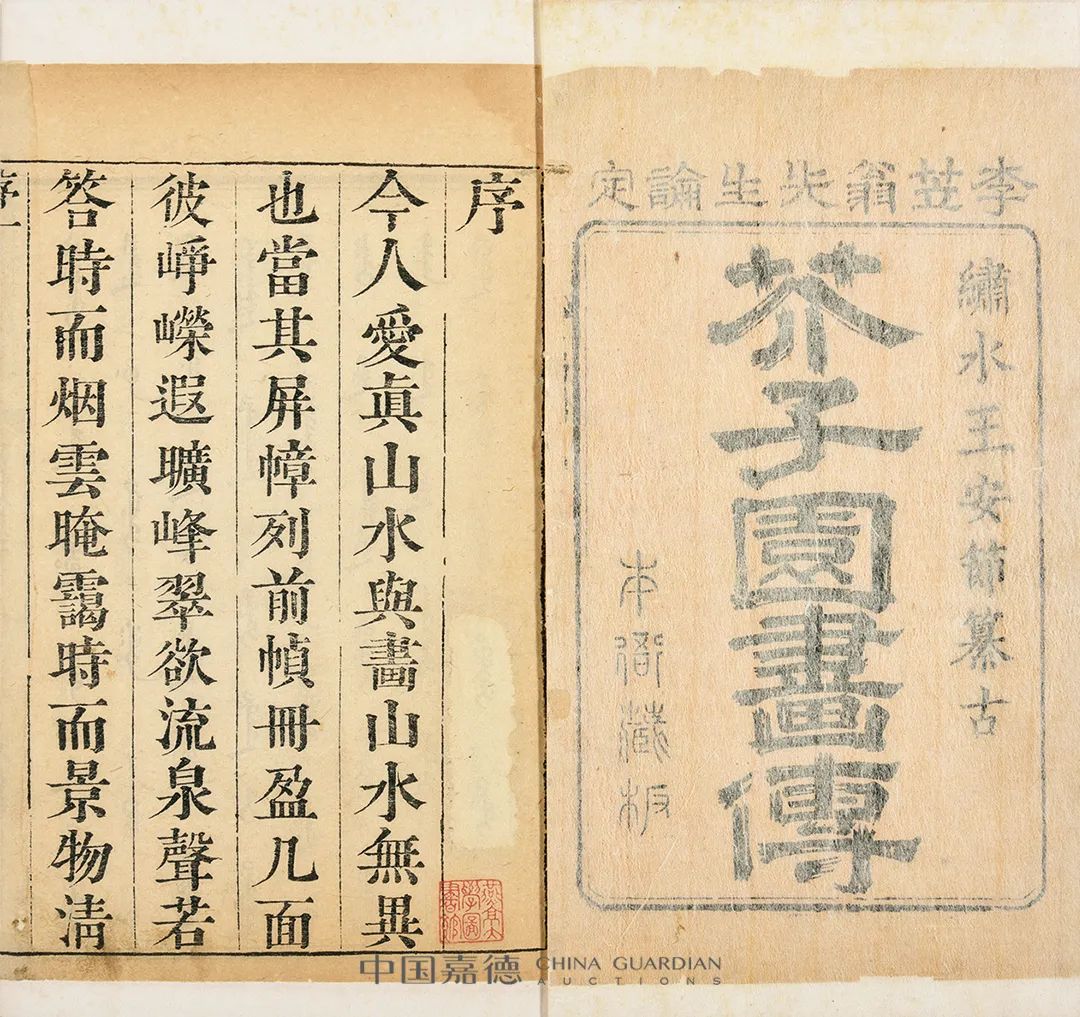 李笠翁先生論定
繡水王安節摹古
芥子園畫傳
本衙藏板
序
今人愛眞山水與畫山水無異
也當其屏幛列前幀冊盈几面
彼崢嶸遐曠峰翠欲流泉聲若
答時而烟雲晻靄時而景物清
燕京大
學圖
書館
中国嘉德 CHINA GUARDIAN
AUCTIONS